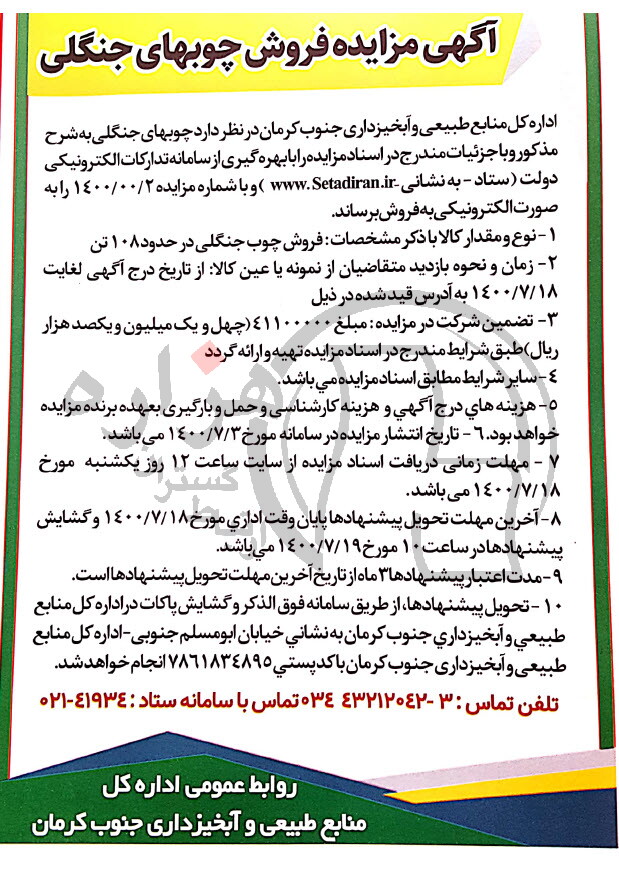 آگهی مزایده فروش چوبهای جنگلی
اداره کل منابع طبیعی و آبخیزداری جنوب کرمان در نظر دارد چوبهای جنگلی به شرح
مذکور و با جزئیات مندرج در اسناد مزایده را با بهره گیری از سامانه تدارکات الکترونیکی
دولت (ستاد - به نشانی -www. Setadiran.ir ) و با شماره مزایده ۱۴۰۰/۰۰/۲ را به
صورت الکترونیکی به فروش برساند.
۱- نوع و مقدار کالا با ذکر مشخصات: فروش چوب جنگلی در حدود ۱۰۸ تن
۲- زمان و نحوه بازدید متقاضیان از نمونه یا عین کالا: از تاریخ درج آگهی لغایت
۱۴۰۰/۷/۱۸ به آدرس قید شده در ذیل
۳- تضمین شرکت در مزایده: مبلغ ۴۱۱۰۰۰۰۰ (چهل و یک میلیون و یکصد هزار
ریال) طبق شرایط مندرج در اسناد مزایده تهیه و ارائه گردد
۴- سایر شرایط مطابق اسناد مزایده می باشد.
۵- هزینه های درج آگهي و هزینه کارشناسی و حمل و بارگیری بعهده برنده مزایده
خواهد بود. ۶ - تاریخ انتشار مزایده در سامانه مورخ ۱۴۰۰/۷/۳ می باشد.
۷ - مهلت زمانی دریافت اسناد مزایده از سایت ساعت ۱۲ روز یکشنبه مورخ
۱۴۰۰/۷/۱۸ می باشد.
۸- آخرین مهلت تحویل پیشنهادها پایان وقت اداري مورخ ۱۴۰۰/۷/۱۸ و گشایش
پیشنهادها در ساعت ۱۰ مورخ ۱۴۰۰/۷/۱۹ مي باشد.
۹- مدت اعتبار پیشنهادها ۳ ماه از تاریخ آخرین مهلت تحویل پیشنهادها است.
۱۰- تحویل پیشنهادها، از طریق سامانه فوق الذکر و گشایش پاکات در اداره کل منابع
طبیعي و آبخیزداري جنوب کرمان به نشاني خیابان ابومسلم جنوبی- اداره کل منابع
طبیعی و آبخیزداری جنوب کرمان با کدپستي ۷۸۶۱۸۳۴۸۹۵ انجام خواهد شد.
تلفن تماس : ۳ -۴۳۲۱۲۰۴۲ ۰۳۴ تماس با سامانه ستاد : ۴۱۹۳۴-۰۲۱
روابط عمومی اداره کل
منابع طبیعی و آبخیزداری جنوب کرمان
هزاره